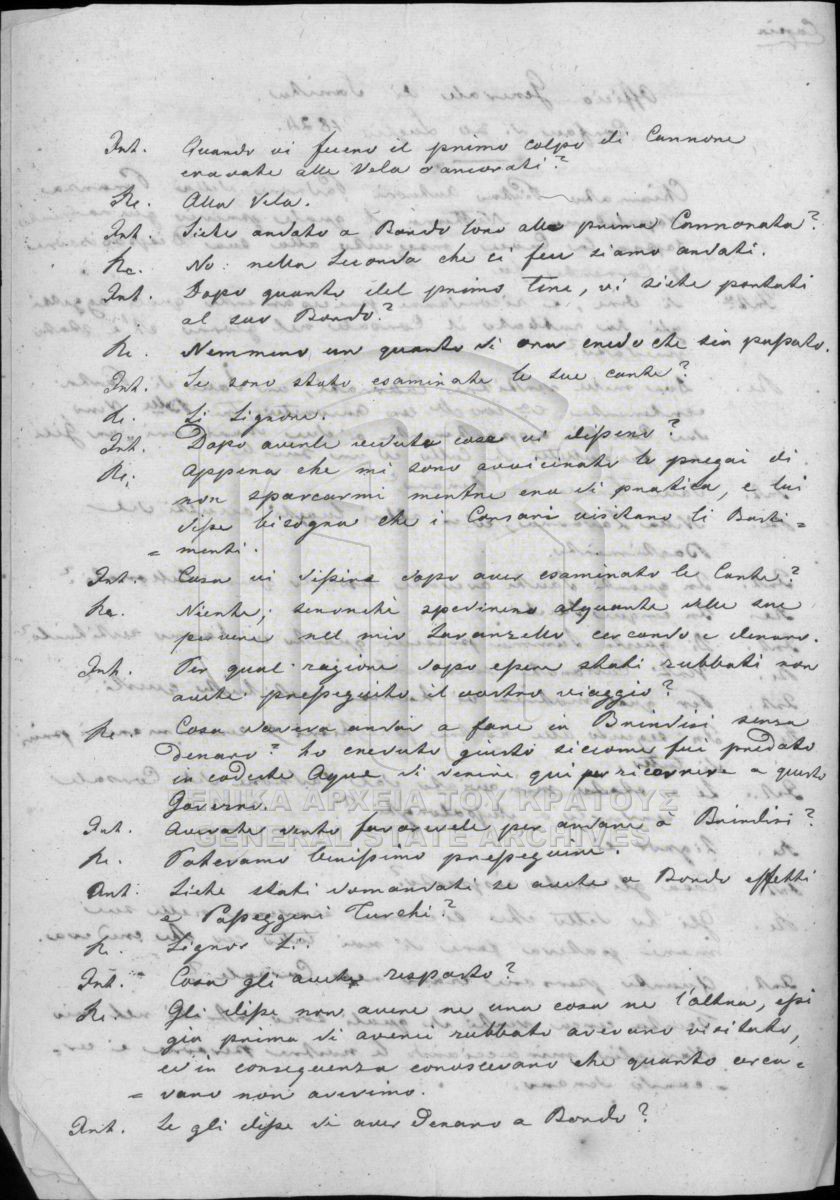 Int. Quando vi fecero il primo colpo di Cannone
eravate alla Vela o ancorati?
Re. Alla Vela.
Int. Siete andato a Bordo loro alla prima Cannonata?
Re. No: nella Seconda che ci fece siamo andati.
Int. Dopo quanto del primo Tiro, vi siete portati
al suo Bordo?
Re. Nemmeno un quarto di ora credo che sia passato.
Int. Se sono stato esaminate le sue carte?
Re. Si Signore.
Int. Dopo averle vedute cosa vi dissero?
Re. Appena che mi sono avvicinato lo pregai di
non sporcarmi mentre era di pratica, e lui
disse bisogna che i Corsari visitano li Basti=
=menti.
Int. Cosa vi dissero dopo aver esaminato le Carte?
Re. Niente; senonchè spedirono alquante delle sue
persone nel mio Lavanzello cercando e denaro.
Int. Per qual ragione dopo essere stati rubbati non
avete presseguito il vostro viaggio?
Re. Cosa doveva andar a fare in Brindisi senza
Denaro? ho creduto giusto siccome fui predato
in codeste Aque di venire qui per ricorrere a questo
Governo.
Int. Avevate vento favorevole per andare à Brindisi?
Re. Potevamo benissimo presseguire.
Int. Siete stati domandati se avete a Bordo effetti
e Passeggeri Turchi?
R. Signor Si.
Int. Cosa gli avete risposto?
Re. Gli disse non avere ne una cosa ne l'altra, essi
gia prima di averci rubbato avevano visitato,
ed in conseguenza conoscevano che quanto cerca=
=vano non avevimo.
Int. Se gli disse di aver Denaro a Bordo?
Copia
ΓΕΝΙΚΑ ΑΡΧΕΙΑ ΤΟΥ ΚΡΑΤΟΥΣ
GENERAL STATE ARCHIVES